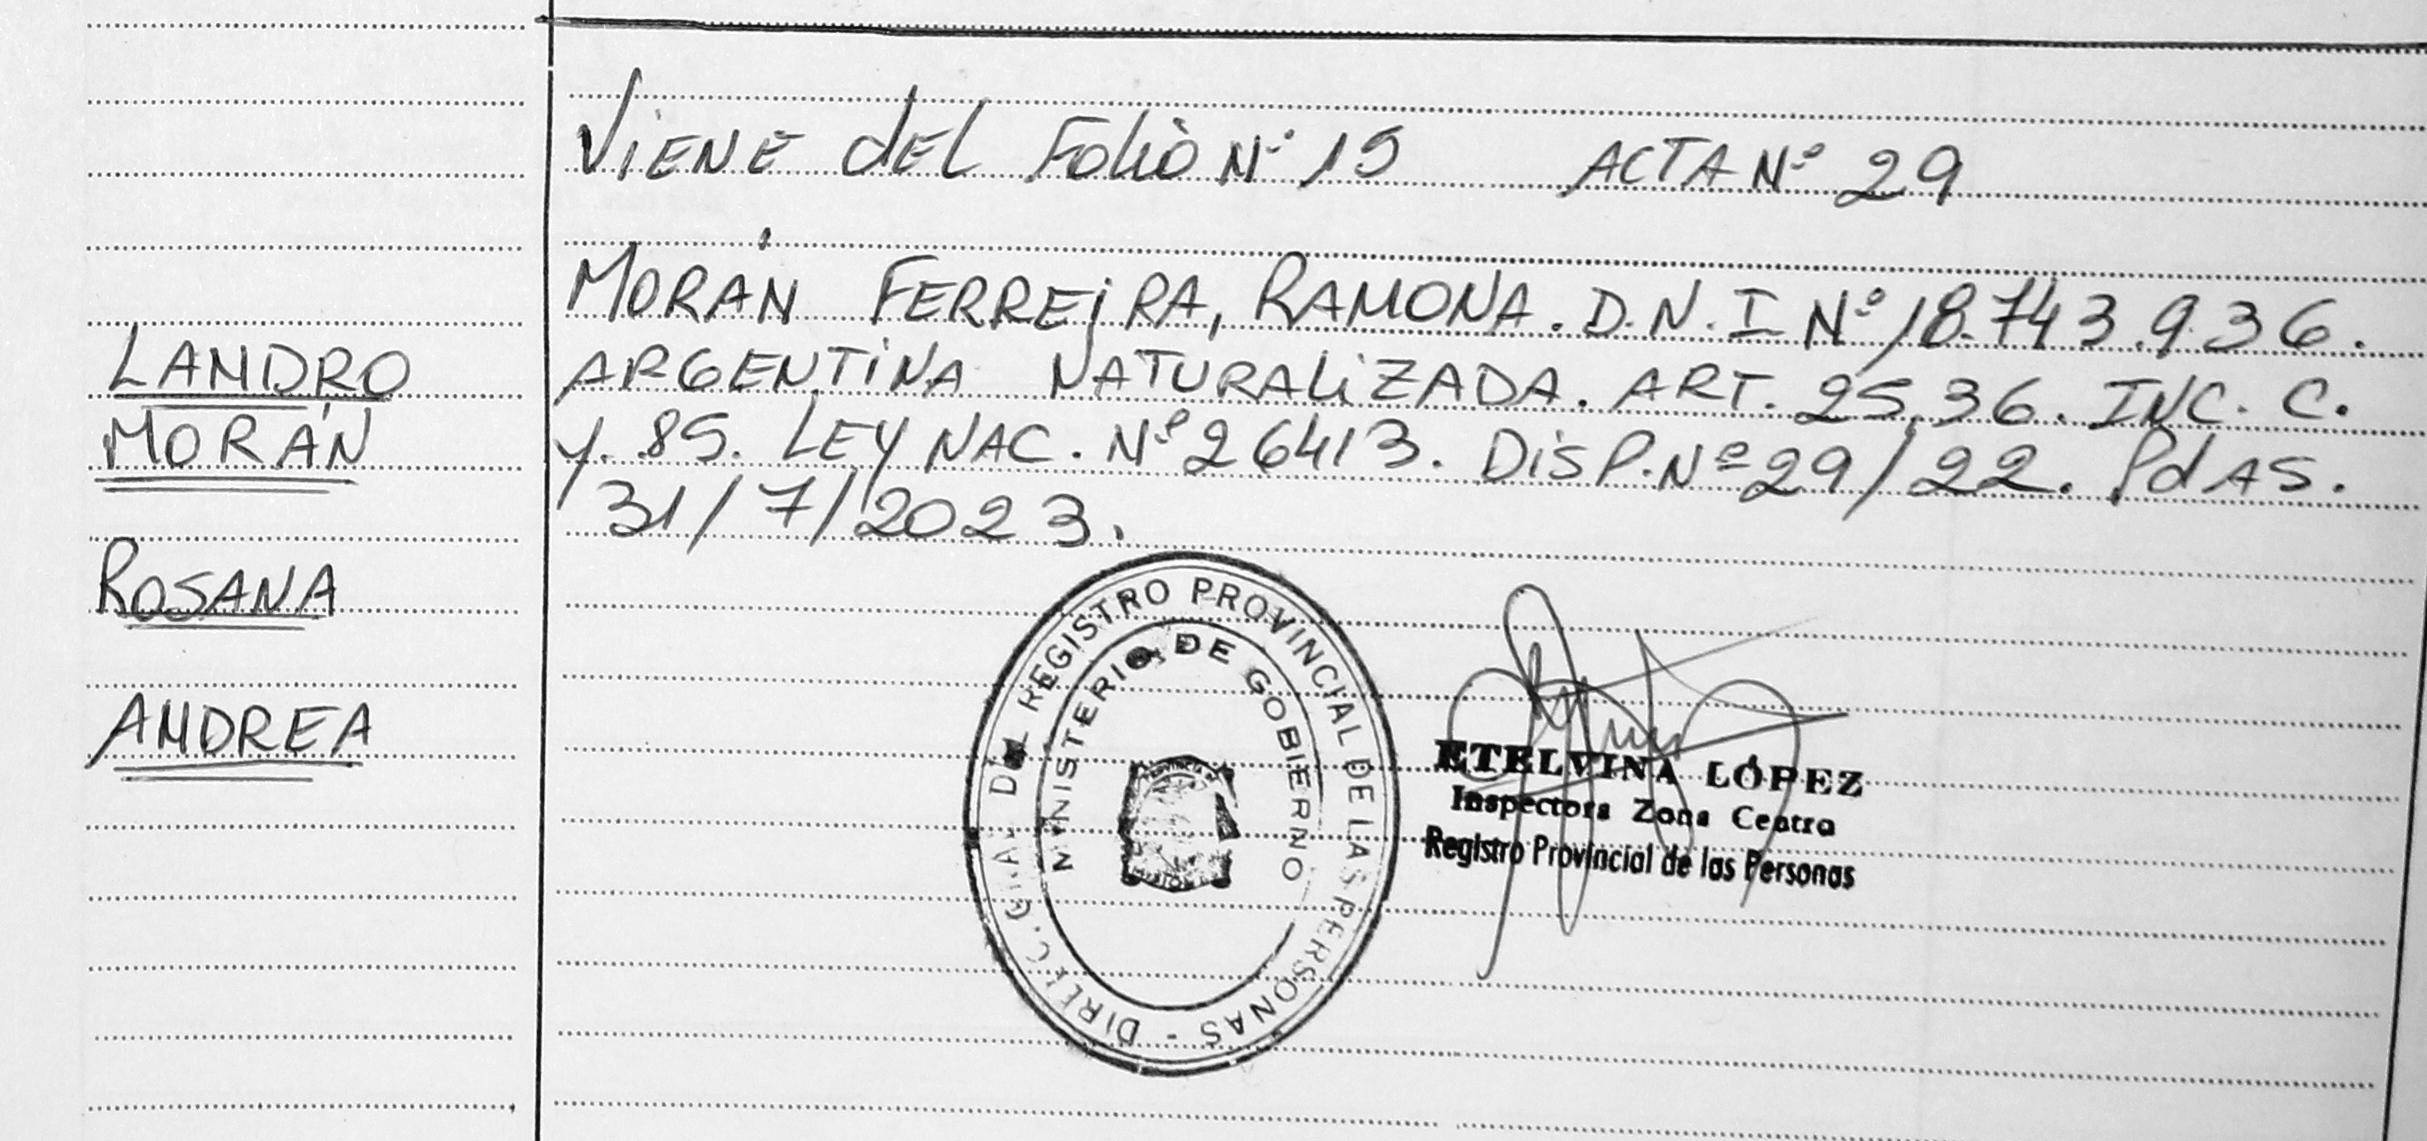 Viene del Folio Nº 15 ACTA Nº 29
MORÁN FERREIRA, RAMONA. D.N.I Nº 18.743.936.
ARGENTINA NATURALIZADA. ART. 25, 36. INC. C.
y. 85. LEY NAC. Nº 26413. DISP. Nº 29/22. PdAS.
31/7/2023.
LANDRO
MORÁN
ROSANA
ANDREA
DIREC. GRAL. DEL REGISTRO PROVINCIAL DE LAS PERSONAS -
MINISTERIO DE GOBIERNO
ETELVINA LÓPEZ
Inspectora Zona Centro
Registro Provincial de las Personas